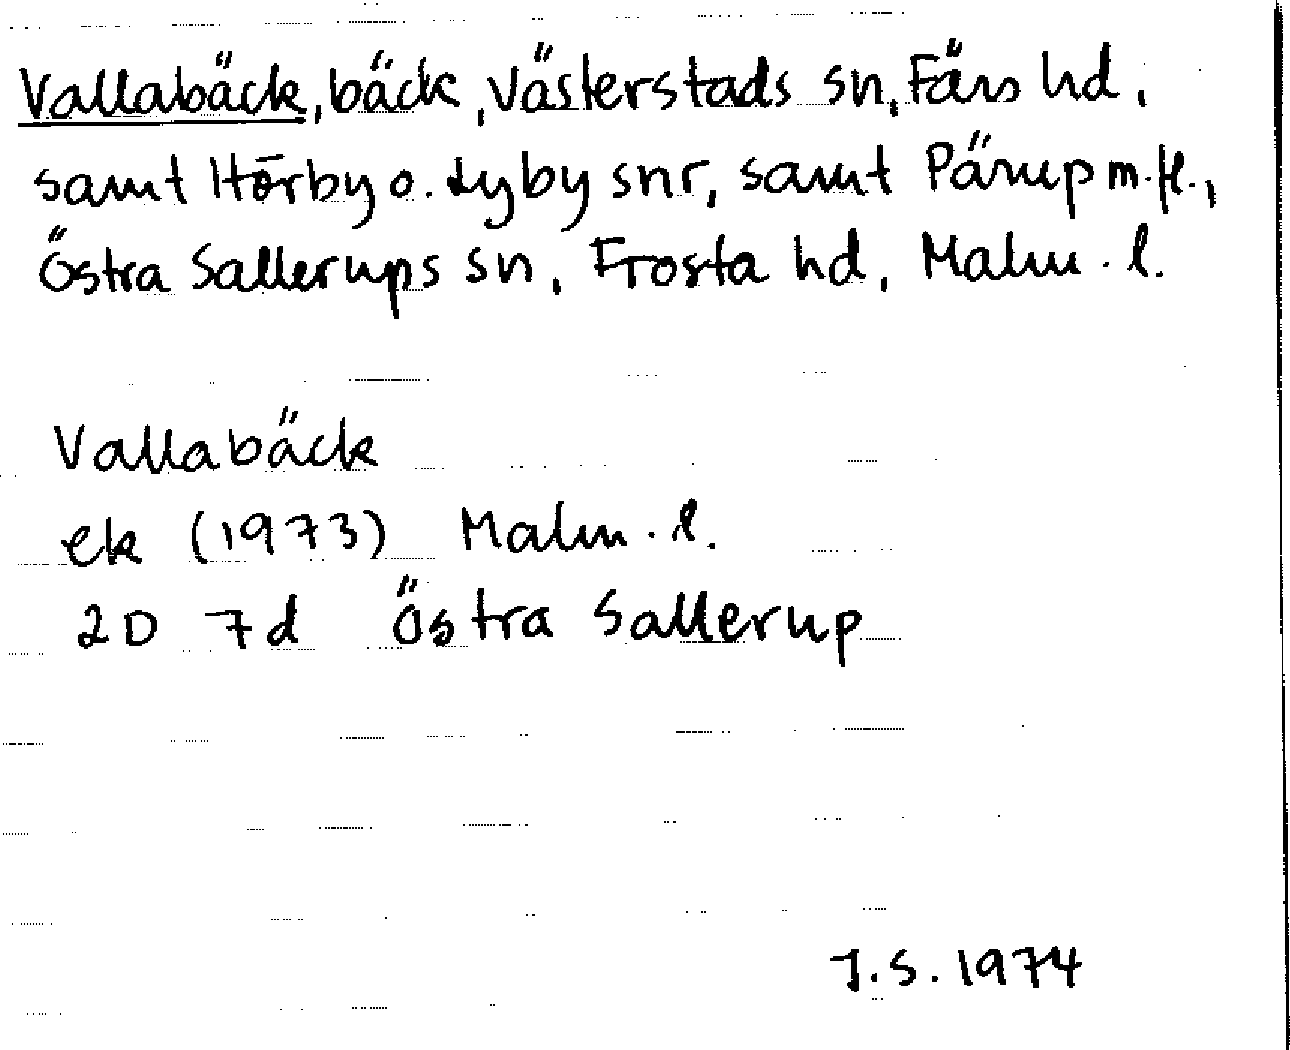 Vallabäck, bäck, Västerstads sn, Färs hd,
samt Hörby o. Lyby snr, samt Pärup m.fl.,
Östra Sallerups sn, Frosta hd, Malm. l.
Vallabäck
ek (1973) Malm. l.
2D 7d Östra Sallerup
J.S. 1974